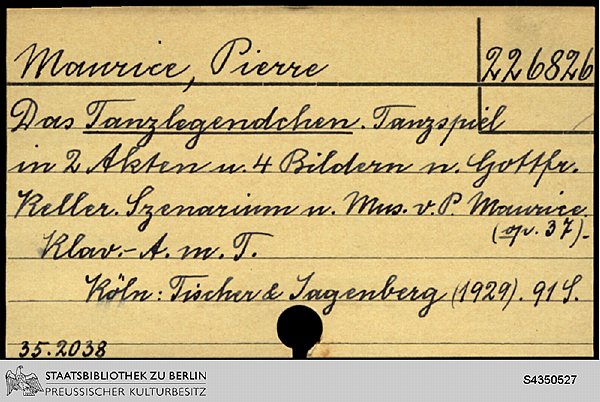 Maurice, Pierre
226826
Das Tanzlegendchen. Tanzspiel
in 2 Akten u. 4 Bildern n. Gottfr.
Keller. Szenarium u. Mus. v. P. Maurice.
(op. 37).
Klav.-A. m. T.
Köln: Tischer & Jagenberg (1929). 91 S.
35.2038
STAATSBIBLIOTHEK ZU BERLIN
PREUSSISCHER KULTURBESITZ
S4350527